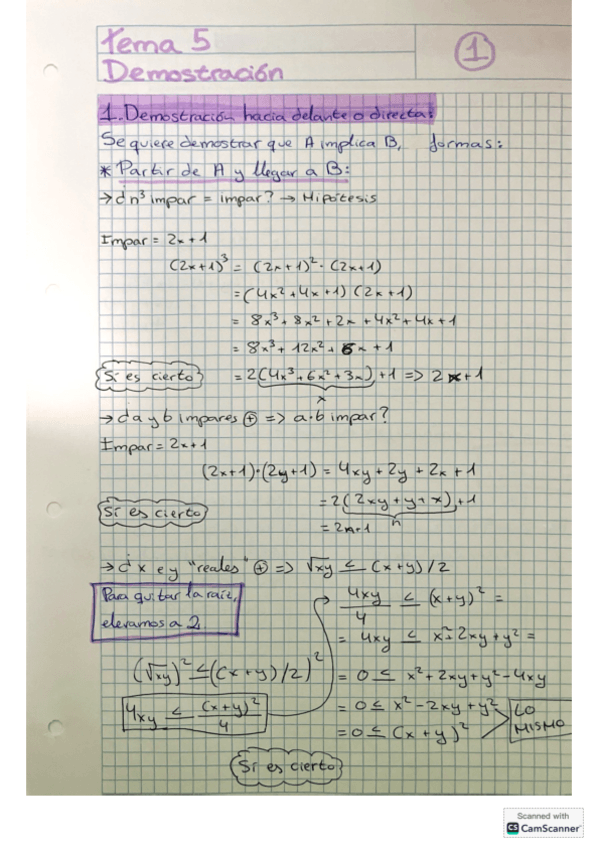 Tema 5
1
Demostración
1. Demostración hacia delante o directa:
Se quiere demostrar que A implica B, formas:
* Partir de A y llegar a B:
→ ¿n³ impar = impar? → Hipótesis
Impar = 2x+1
(2x+1)³ = (2x+1)² · (2x+1)
= (4x²+4x+1) (2x+1)
= 8x³+8x²+2x+4x²+4x+1
= 8x³+12x²+6x+1
Sí es cierto
= 2(4x³+6x²+3x)+1 => 2x+1
x
→ ¿a y b impares ⊕ => a·b impar?
Impar = 2x+1
(2x+1)·(2y+1) = 4xy+2y+2x+1
= 2(2xy+y+x)+1
Sí es cierto
n
= 2n+1
→ ¿x e y "reales" ⊕ => √xy ≤ (x+y)/2
Para quitar la raíz,
elevamos a 2
4xy/4 ≤ (x+y)² =
= 4xy ≤ x²+2xy+y² =
(√xy)² ≤ ((x+y)/2)²
= 0 ≤ x²+2xy+y²-4xy
4xy ≤ (x+y)²/4
= 0 ≤ x²-2xy+y²
= 0 ≤ (x+y)²
LO
MISMO
Sí es cierto
Scanned with
CS CamScanner